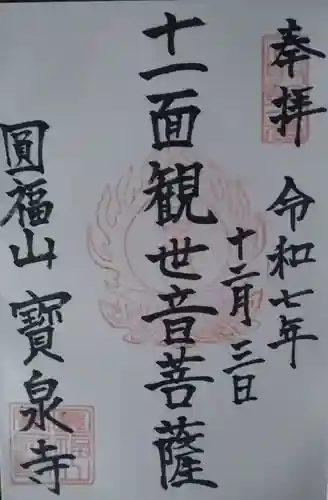 奉拝
令和七年
十二月三日
十一面観世音菩薩
圓福山寳泉寺